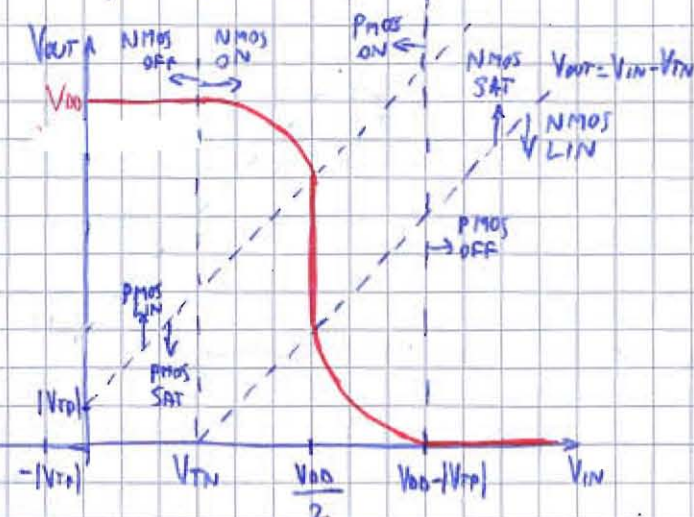 VOUT
NMOS
OFF
NMOS
ON
PMOS
ON
NMOS
SAT
VOUT=VIN-VTN
VDD
NMOS
LIN
PMOS
OFF
PMOS
LIN
PMOS
SAT
|VTP|
-|VTP|
VTN
VDD
2
VDD-|VTP|
VIN